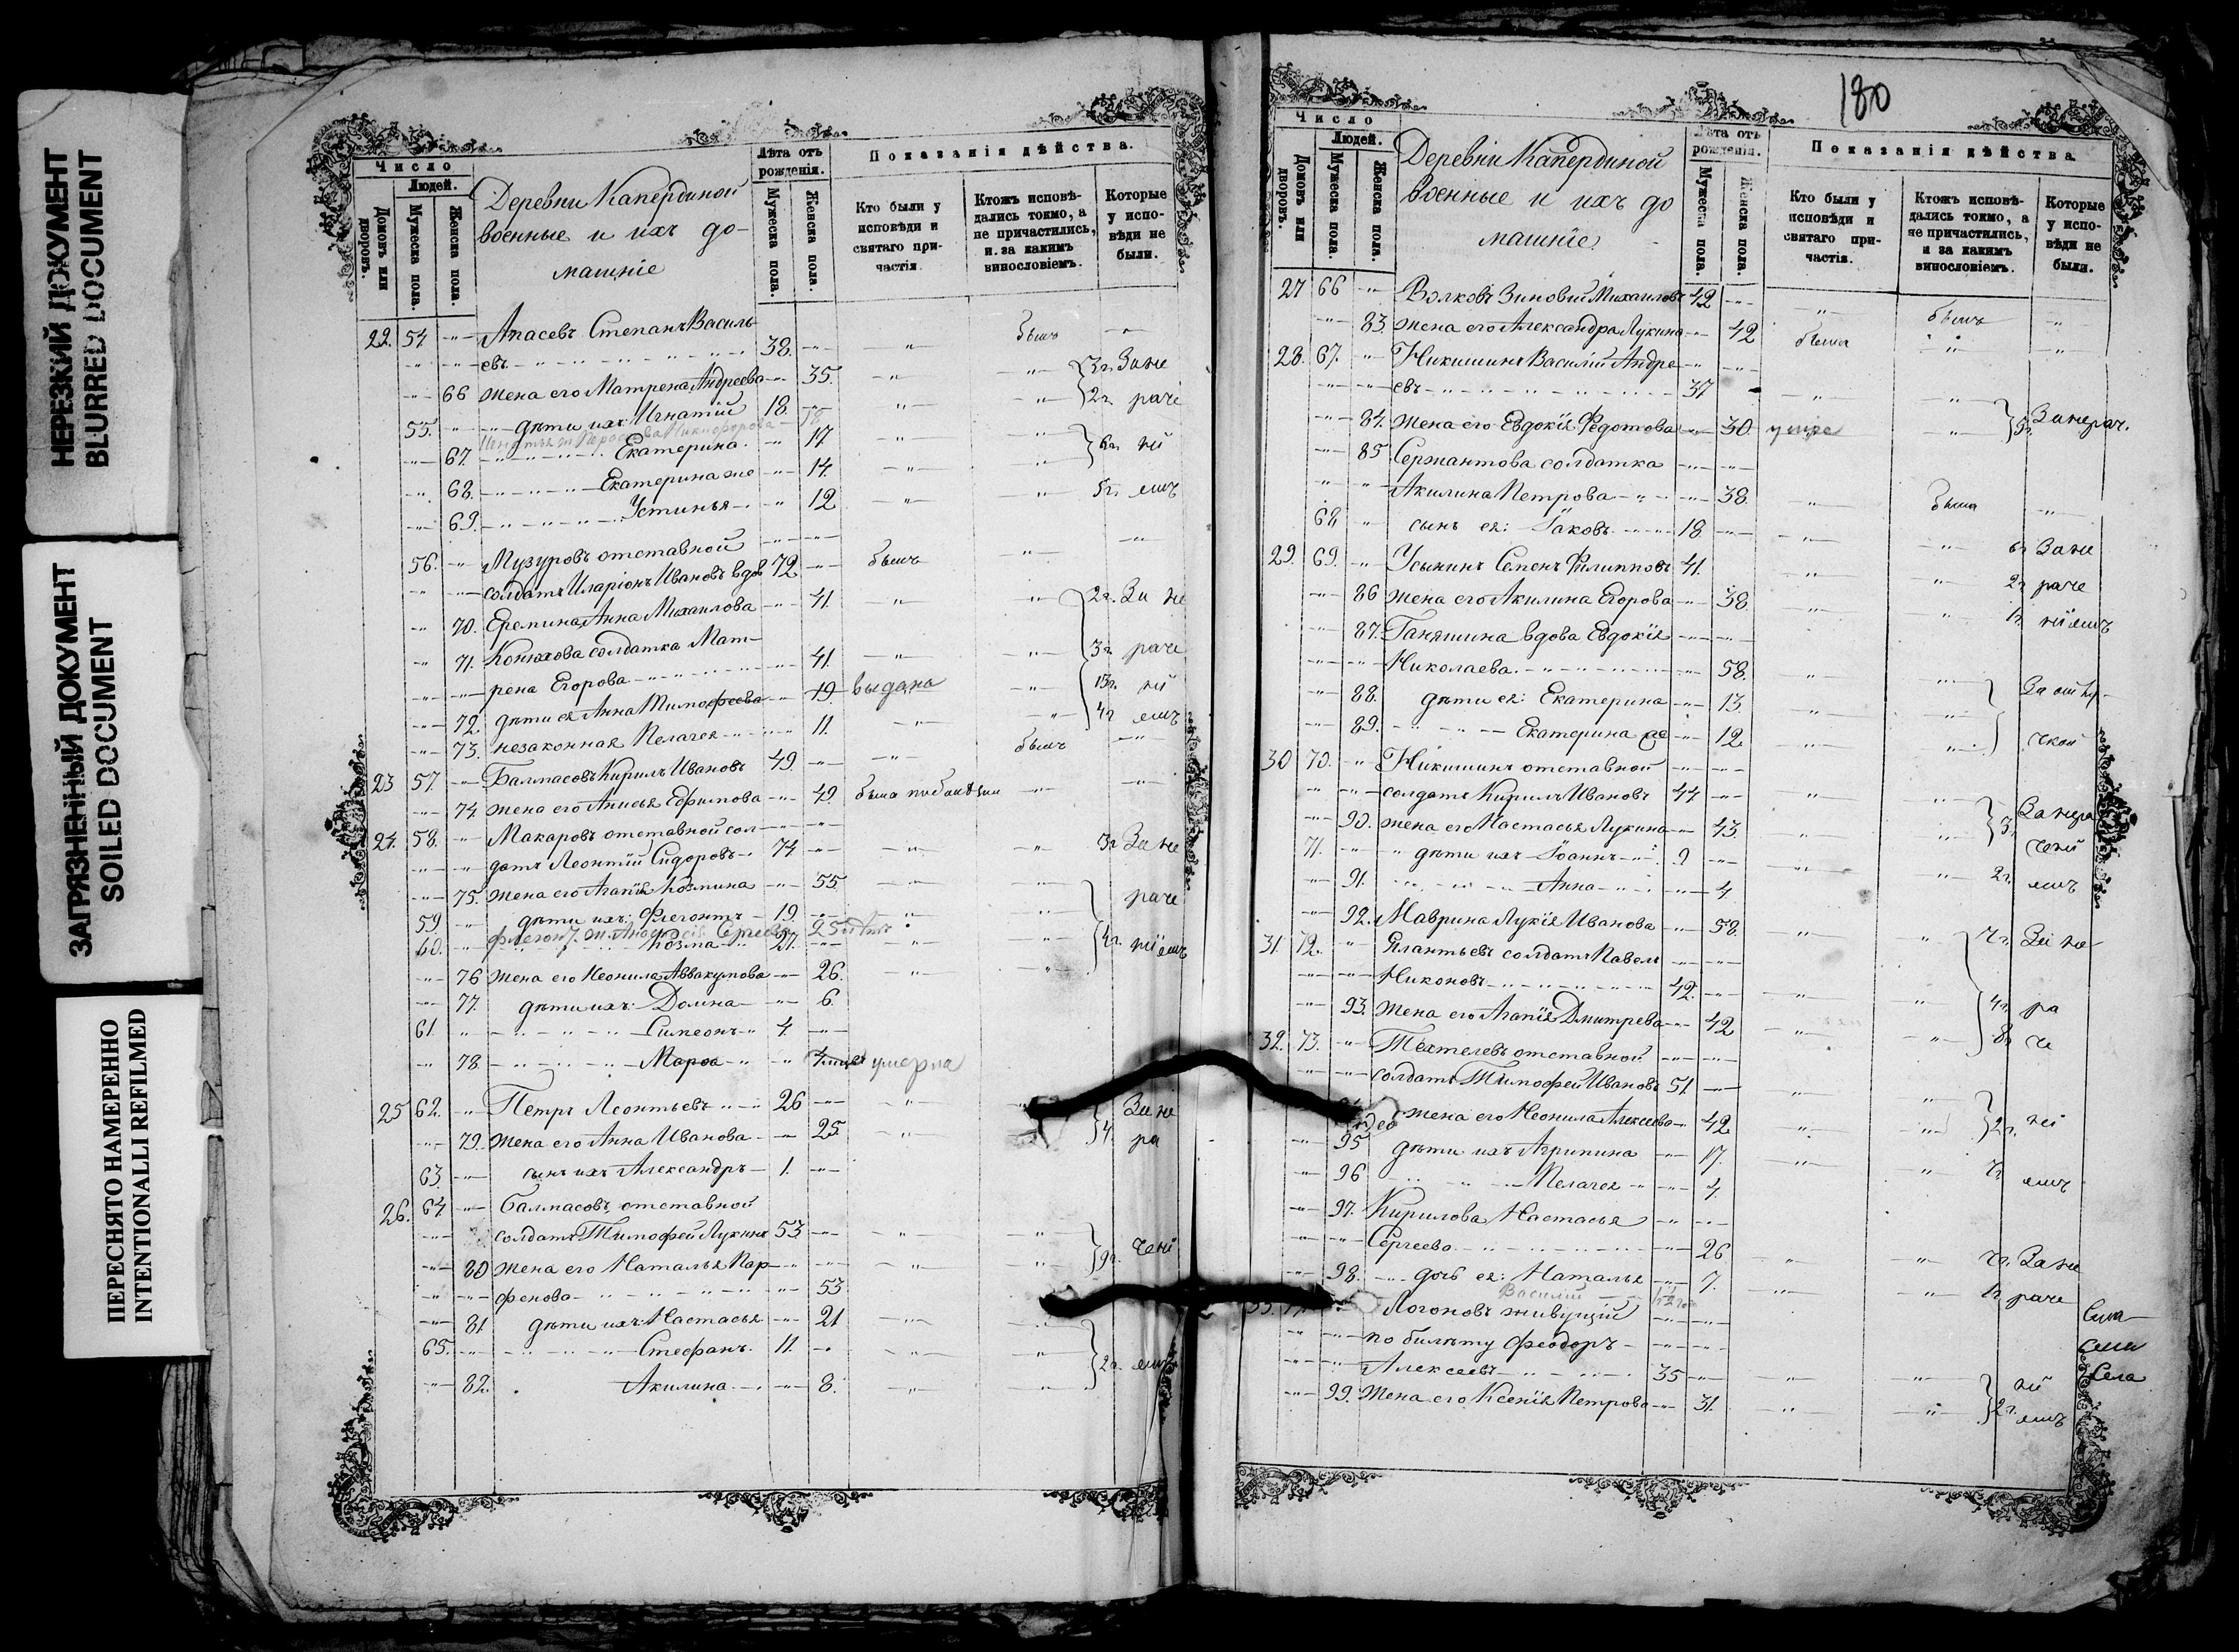 НЕРЕЗКИЙ ДОКУМЕНТ
BLURRED DOCUMENT
ЗАГРЯЗНЕННЫЙ ДОКУМЕНТ
SOILED DOCUMENT
ПЕРЕСНЯТО НАМЕРЕННО
INTENTIONALLI REFILMED
Число
Людей.
Домовъ или дворовъ.
Мужеска пола.
Женска пола.
Деревни Капердиной
военные и ихъ до-
машніе
Лѣта отъ рожденія.
Мужеска пола.
Женска пола.
Показанія дѣйства.
Кто были у исповѣди и святаго при-частія.
Ктожъ исповѣ-дались токмо, а не причастились, и за какимъ винословіемъ.
Которые у испо-вѣди не были.
22. 54. Апасевъ Степанъ Василь- былъ
евъ 38.
66 жена его Матрена Андреева 35. 3г. За не
55. дѣти ихъ Игнатій 18. 2г. раче
67. Екатерина 17 6г. ній
68. Екатерина же 14.
69. Устинья 12 5г. емъ
56. Музуровъ отставной
солдатъ Иларіонъ Ивановъ вдов 72 былъ
70. Еремина Анна Михаилова 41. 2г. За не
71. Конюхова солдатка Мат-
рена Егорова 41. 3г. раче
72. дѣти ея Анна Тимофеева 19. выдана 13г. ній
73. незаконная Пелагея 11. 4г. емъ
23 57. Балмасовъ Кирилъ Ивановъ 49. былъ
74. жена его Анисья Ефимова 49. была
24. 58. Макаровъ отставной сол-
датъ Леонтій Сидоровъ 74 3г. За не
75. жена его Агапія Козмина 55. раче
59. дѣти ихъ: Флегонтъ 19.
60. Козма 27. 4г. ніемъ
76 жена его Неонила Аввакумова 26.
77. дѣти ихъ: Домна 6.
61. Симеонъ 4.
78. Марѳа умерла
25 62. Петръ Леонтьевъ 26 За не
79. жена его Анна Иванова 25. 4. ра
63. сынъ ихъ Александръ 1.
26. 64. Балмасовъ отставной
солдатъ Тимофей Лукинъ 53
80 жена его Наталья Пар- 9г. чені
фенова 53
81. дѣти ихъ: Настасья 21
65. Стефанъ. 11. 2г. емъ
82. Акилина 8.
180
Число
Людей.
Домовъ или дворовъ.
Мужеска пола.
Женска пола.
Деревни Капердиной
военные и ихъ до
машніе
Лѣта отъ рожденія.
Мужеска пола.
Женска пола.
Показанія дѣйства.
Кто были у исповѣди и святаго при-частія.
Ктожъ исповѣ-дались токмо, а не причастились, и за какимъ винословіемъ.
Которые у испо-вѣди не были.
27 66 Волковъ Зиновій Михаиловъ 42 былъ
83. жена его Александра Лукина 42 была
28. 67. Никишинъ Василій Андре-
евъ 37
84. жена его Евдокія Федотова 30. 5г. За нерач.
85 Сержантова солдатка
Акилина Петрова 38. была
68 сынъ ея: Іаковъ 18 6г За не
29. 69. Усынинъ Семенъ Филипповъ 41. 2г. раче
86 жена его Акилина Егорова 38. 1г. ніемъ
87. Ганяшина вдова Евдокія
Николаева 58.
88. дѣти ея: Екатерина 13. За отлу-
89. Екатерина же 12. чкой
30 70. Никишинъ отставной
солдатъ Кирилъ Ивановъ 44.
90. жена его Настасья Лукина 43 3. За нера
71. дѣти ихъ Іоаннъ 9 чені
91. Анна 4. 2г. емъ
92. Маврина Лукія Иванова 58. 7г. За не
31 72. Елантьевъ солдатъ Павелъ
Никоновъ 42.
93. жена его Агапія Дмитрева 42 4г. ра
32. 73. Техтелевъ отставной 8г че
солдатъ Тимофей Ивановъ 51.
жена его Неонила Алексеева 42 2г. ні
95 дѣти ихъ Агрипина 17.
96 Пелагея 4. емъ
97. Кирилова Настасья
Сергеева 26 За не
98. дочь ея: Наталья 7. 1г раче
Василій
Логоновъ живущій
по билѣту Феодоръ
Алексеевъ 35 ні
99. жена его Ксенія Петрова 31. 2г. емъ